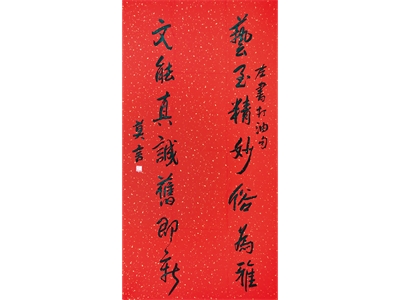 藝至精妙俗為雅
左書打油句
文能真誠舊即新
莫言